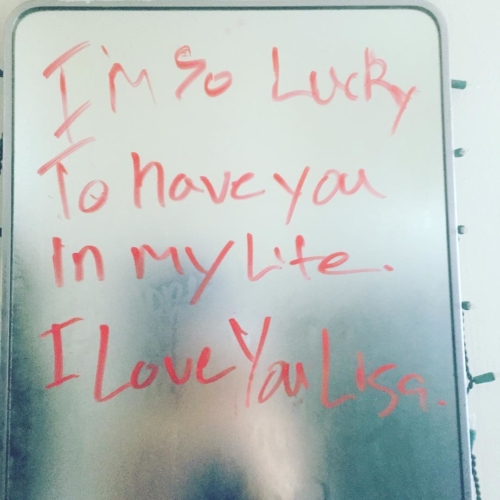 I'm So Lucky
To have you
In my Life.
I Love You Lisa.